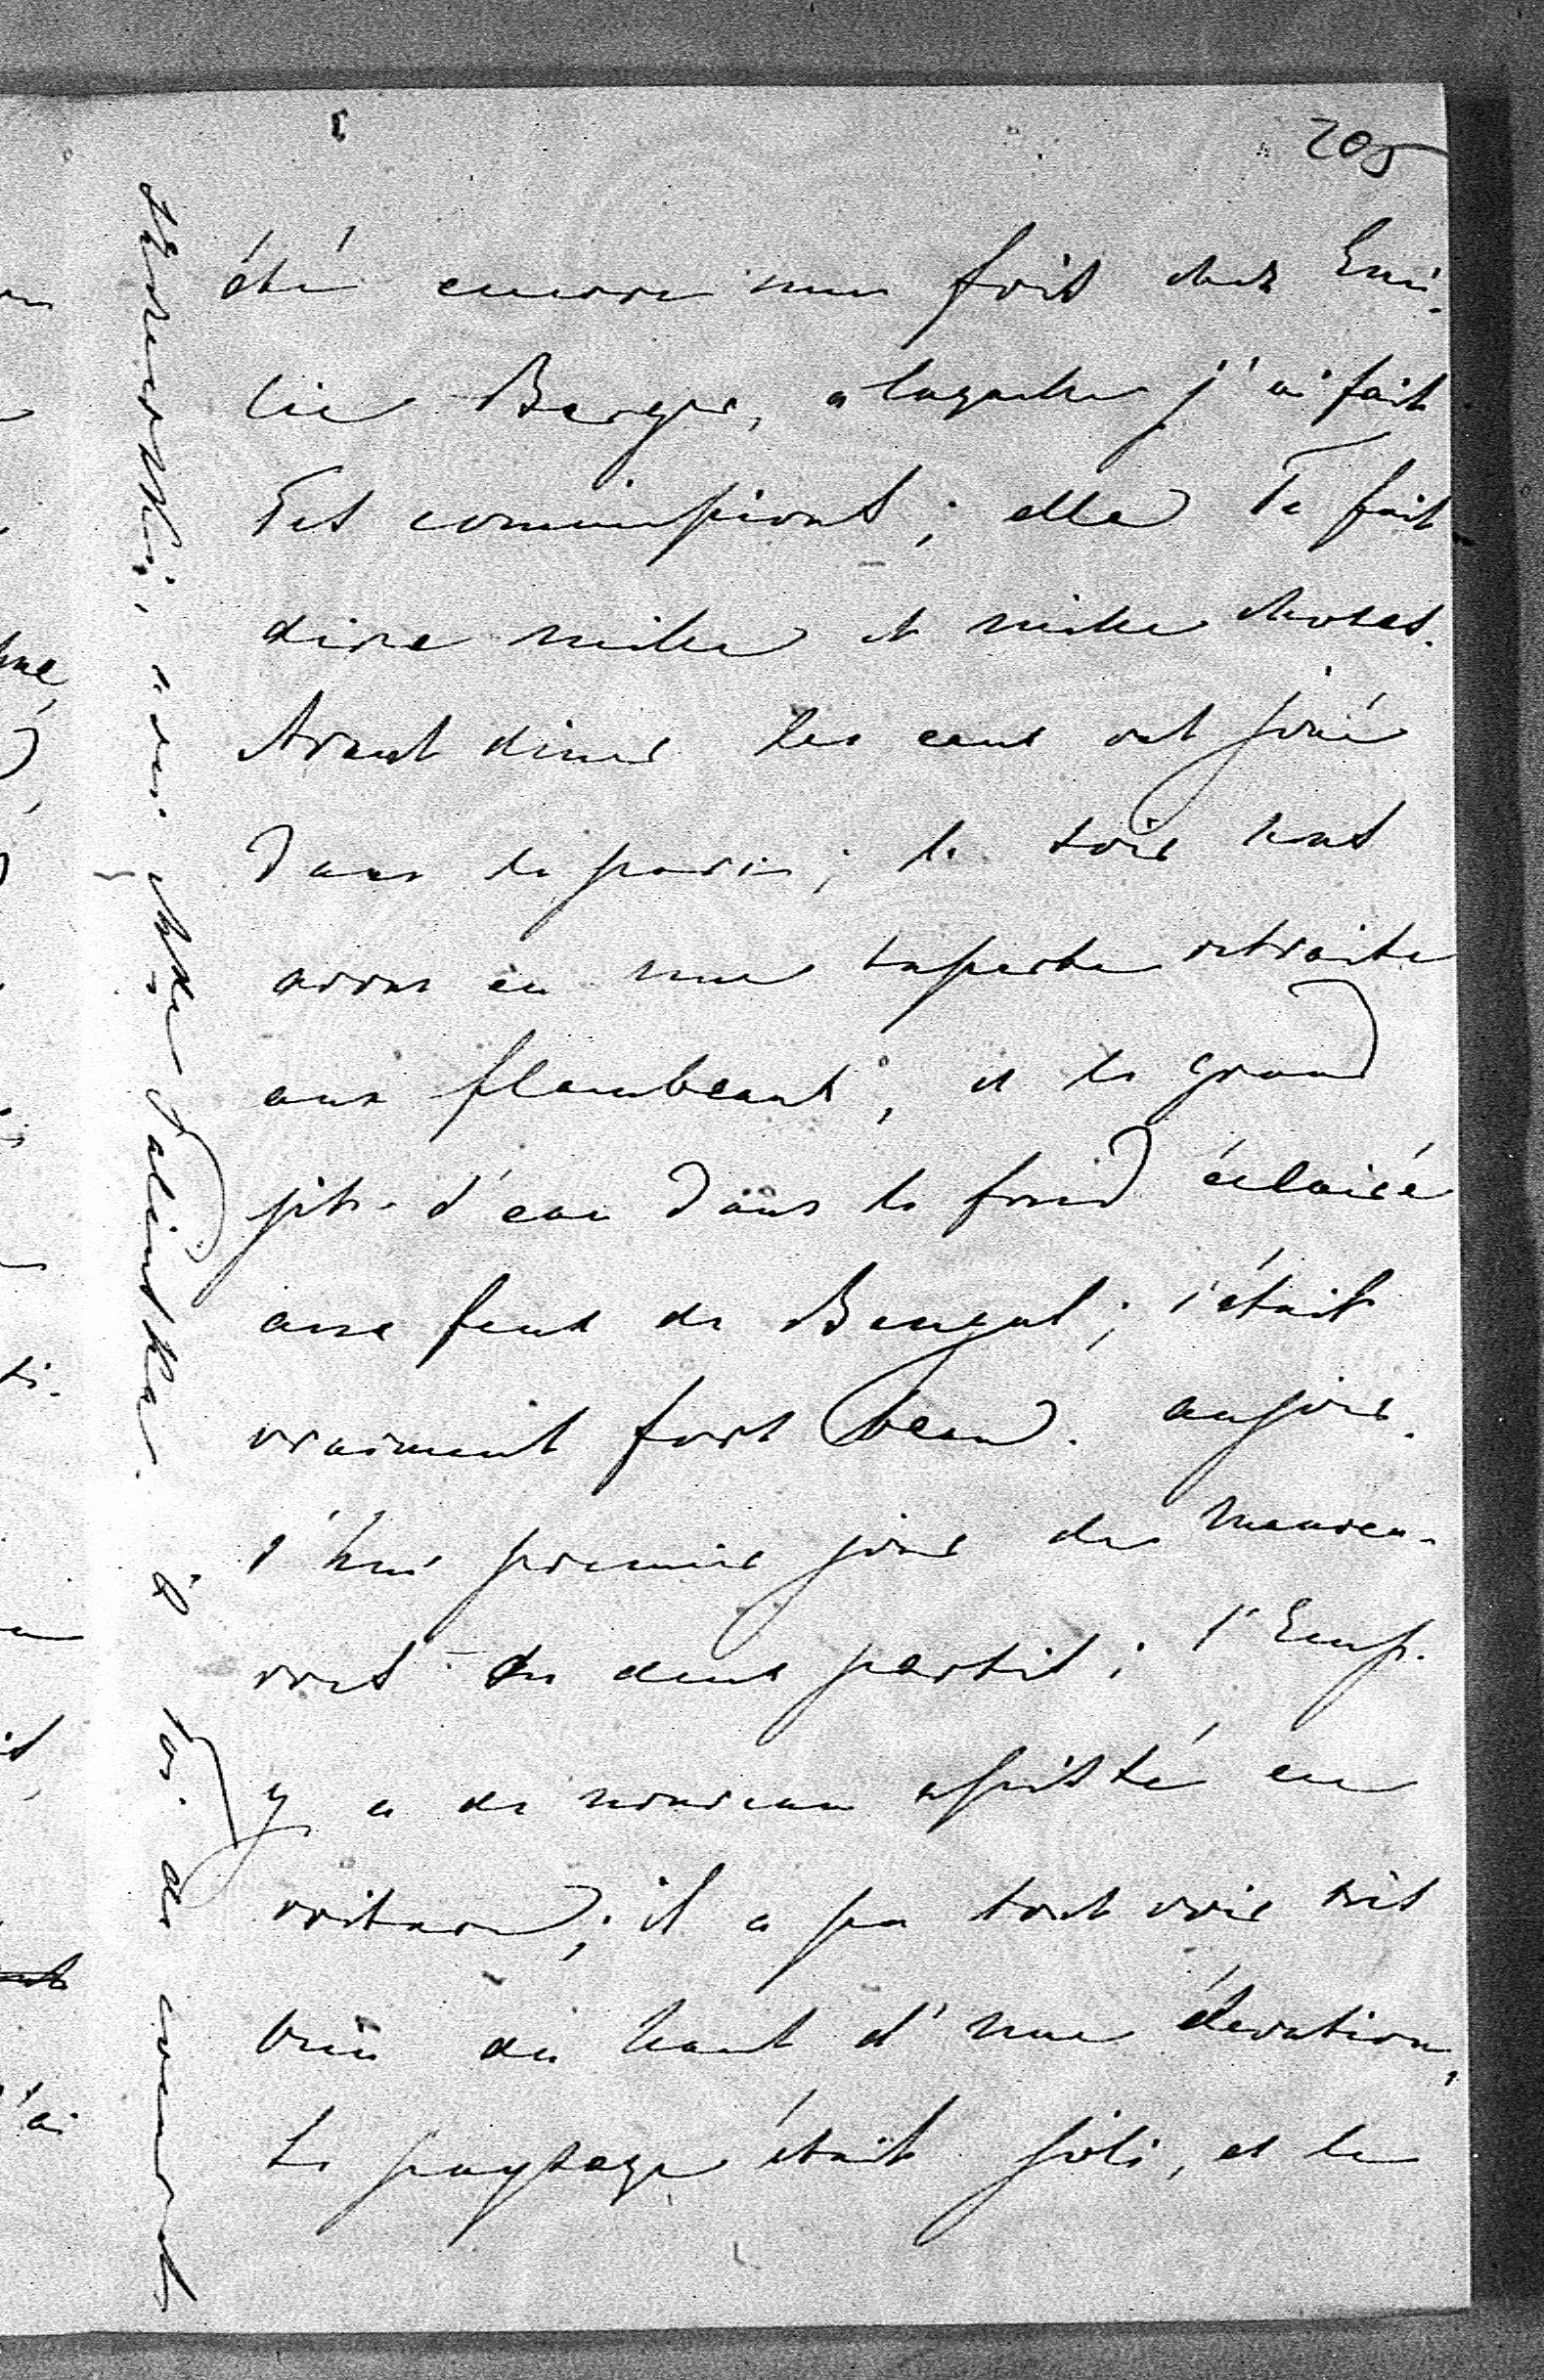 205
été encore une fois chez Emi-
lie Berger, a laquelle j'ai fait
Tes commissions; elle Te fait
dire mille et mille choses.
Avant diner les eaux ont joué
dans le parc; le soir nous
avons eu une superbe retraite
aux flambeaux, et le grand
jet-d'eau dans le fond éclairé
aux feux de Bengal; c'était
vraiment fort beau. aujour-
d'hui premier jour de manoeu-
vres de deux partis; l'Emp.
y a de nouveau assisté en
voiture; il a pu tout voir très
bien du haut d'une élevation,
le paysage était joli, et le
à Toi de coeur